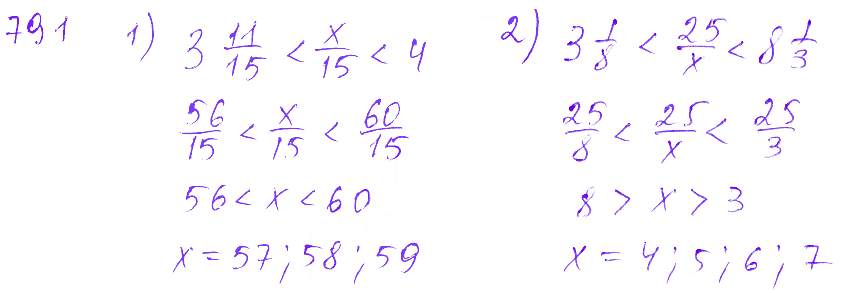 791 1) 3 11/15 < x/15 < 4
56/15 < x/15 < 60/15
56 < x < 60
x = 57; 58; 59
2) 3 1/8 < 25/x < 8 1/3
25/8 < 25/x < 25/3
8 > x > 3
x = 4; 5; 6; 7